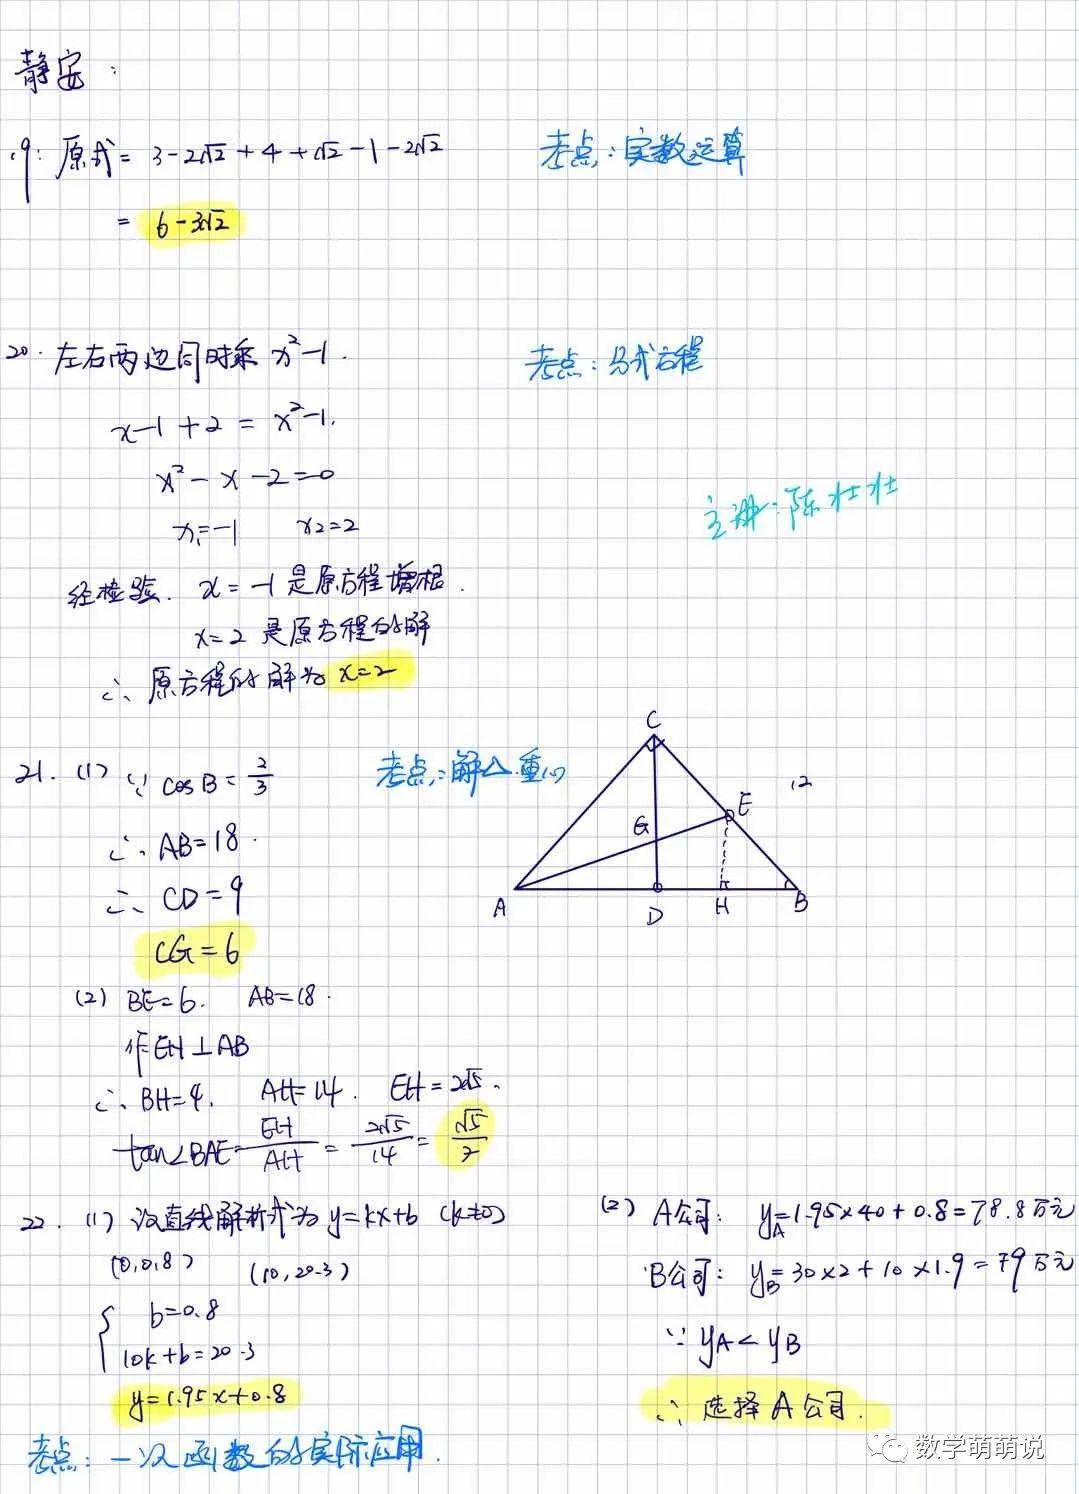 静安:
19. 原式 = 3-2√2+4+√2-1-2√2
= 6-3√2
考点:实数运算
20. 左右两边同时乘 x²-1.
x-1+2 = x²-1.
x²-x-2=0
x₁=-1 x₂=2
经检验. x=-1是原方程增根.
x=2 是原方程的解
∴ 原方程的解为 x=2
考点:分式方程
主讲:陈壮壮
21. (1) ∵ cosB = 2/3
∴ AB=18.
∴ CD=9
CG=6
考点:解△.重心
C
E
12
G
A D H B
(2) BE=6. AB=18.
作EH⊥AB
∴ BH=4. AH=14. EH=2√5.
tan∠BAE = EH/AH = 2√5/14 = √5/7
22. (1) 设直线解析式为 y=kx+b (k≠0)
(0,0.8) (10,20.3)
{ b=0.8
10k+b=20.3
y=1.95x+0.8
考点:一次函数的实际应用.
(2) A公司: y_A=1.95×40+0.8=78.8万元
B公司: y_B=30×2+10×1.9=79万元
∵ y_A<y_B
∴ 选择A公司.
数学萌萌说